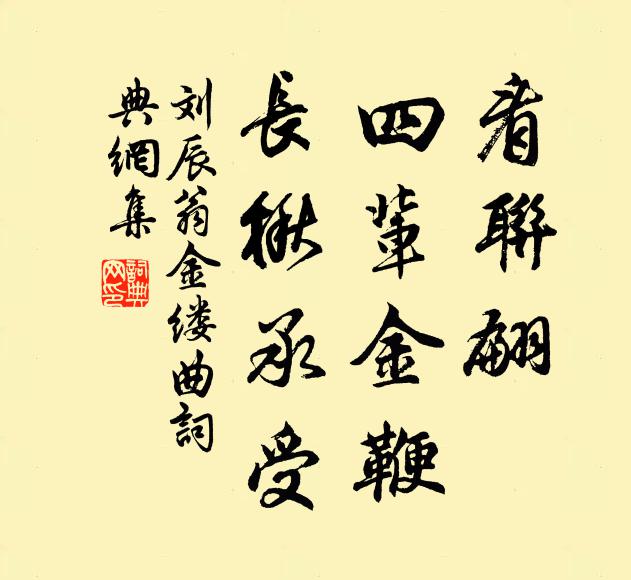 看聯翩
四輩金鞭
長楸承受
刘辰翁金缕曲詞
典網集
詞典网印